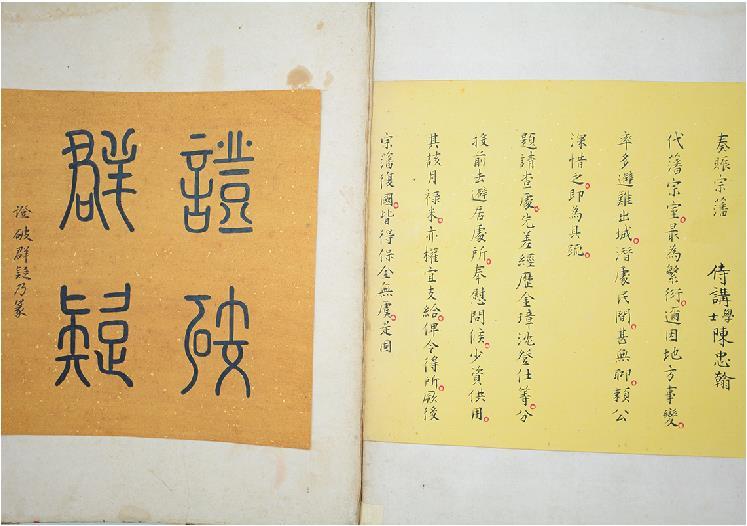 奏賑宗藩 侍講學士陳忠翰
代藩宗室最為繁衍邇因地方事變
率多避難出城潛處民間甚無聊賴公
深惜之即為具疏
題請查處先差經歷金璋沈登仕等分
投前去避居處所奉慰問候少資供用
其該月祿米亦權宜支給俾令得所厥後
宗藩復國皆得保全無虞是用
證破
群疑
證破群疑乃篆